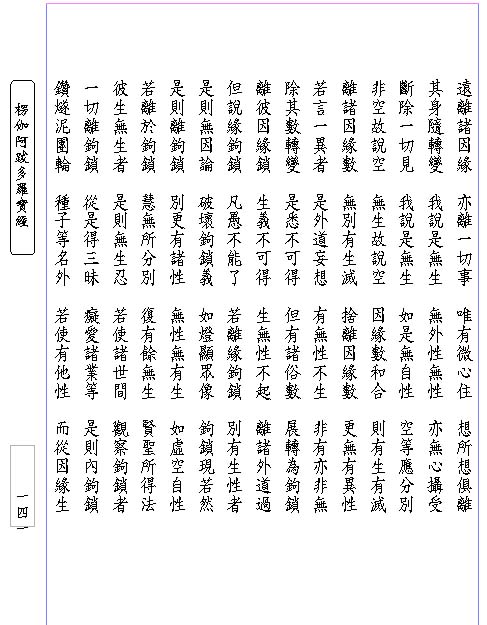 遠離諸因緣　亦離一切事　唯有微心住　想所想俱離
其身隨轉變　我說是無生　無外性無性　亦無心攝受
斷除一切見　我說是無生　如是無自性　空等應分別
非空故說空　無生故說空　因緣數和合　則有生有滅
離諸因緣數　無別有生滅　捨離因緣數　更無有異性
若言一異者　是外道妄想　有無性不生　非有亦非無
除其數轉變　是悉不可得　但有諸俗數　展轉為鉤鎖
離彼因緣鎖　生義不可得　生無性不起　離諸外道過
但說緣鉤鎖　凡愚不能了　若離緣鉤鎖　別有生性者
是則無因論　破壞鉤鎖義　如燈顯眾像　鉤鎖現若然
是則離鉤鎖　別更有諸性　無性無有生　如虛空自性
若離於鉤鎖　慧無所分別　復有餘無生　賢聖所得法
彼生無生者　是則無生忍　若使諸世間　觀察鉤鎖者
一切離鉤鎖　從是得三昧　癡愛諸業等　是則內鉤鎖
鑽燧泥團輪　種子等名外　若使有他性　而從因緣生
楞伽阿跋多羅寶經
一四一